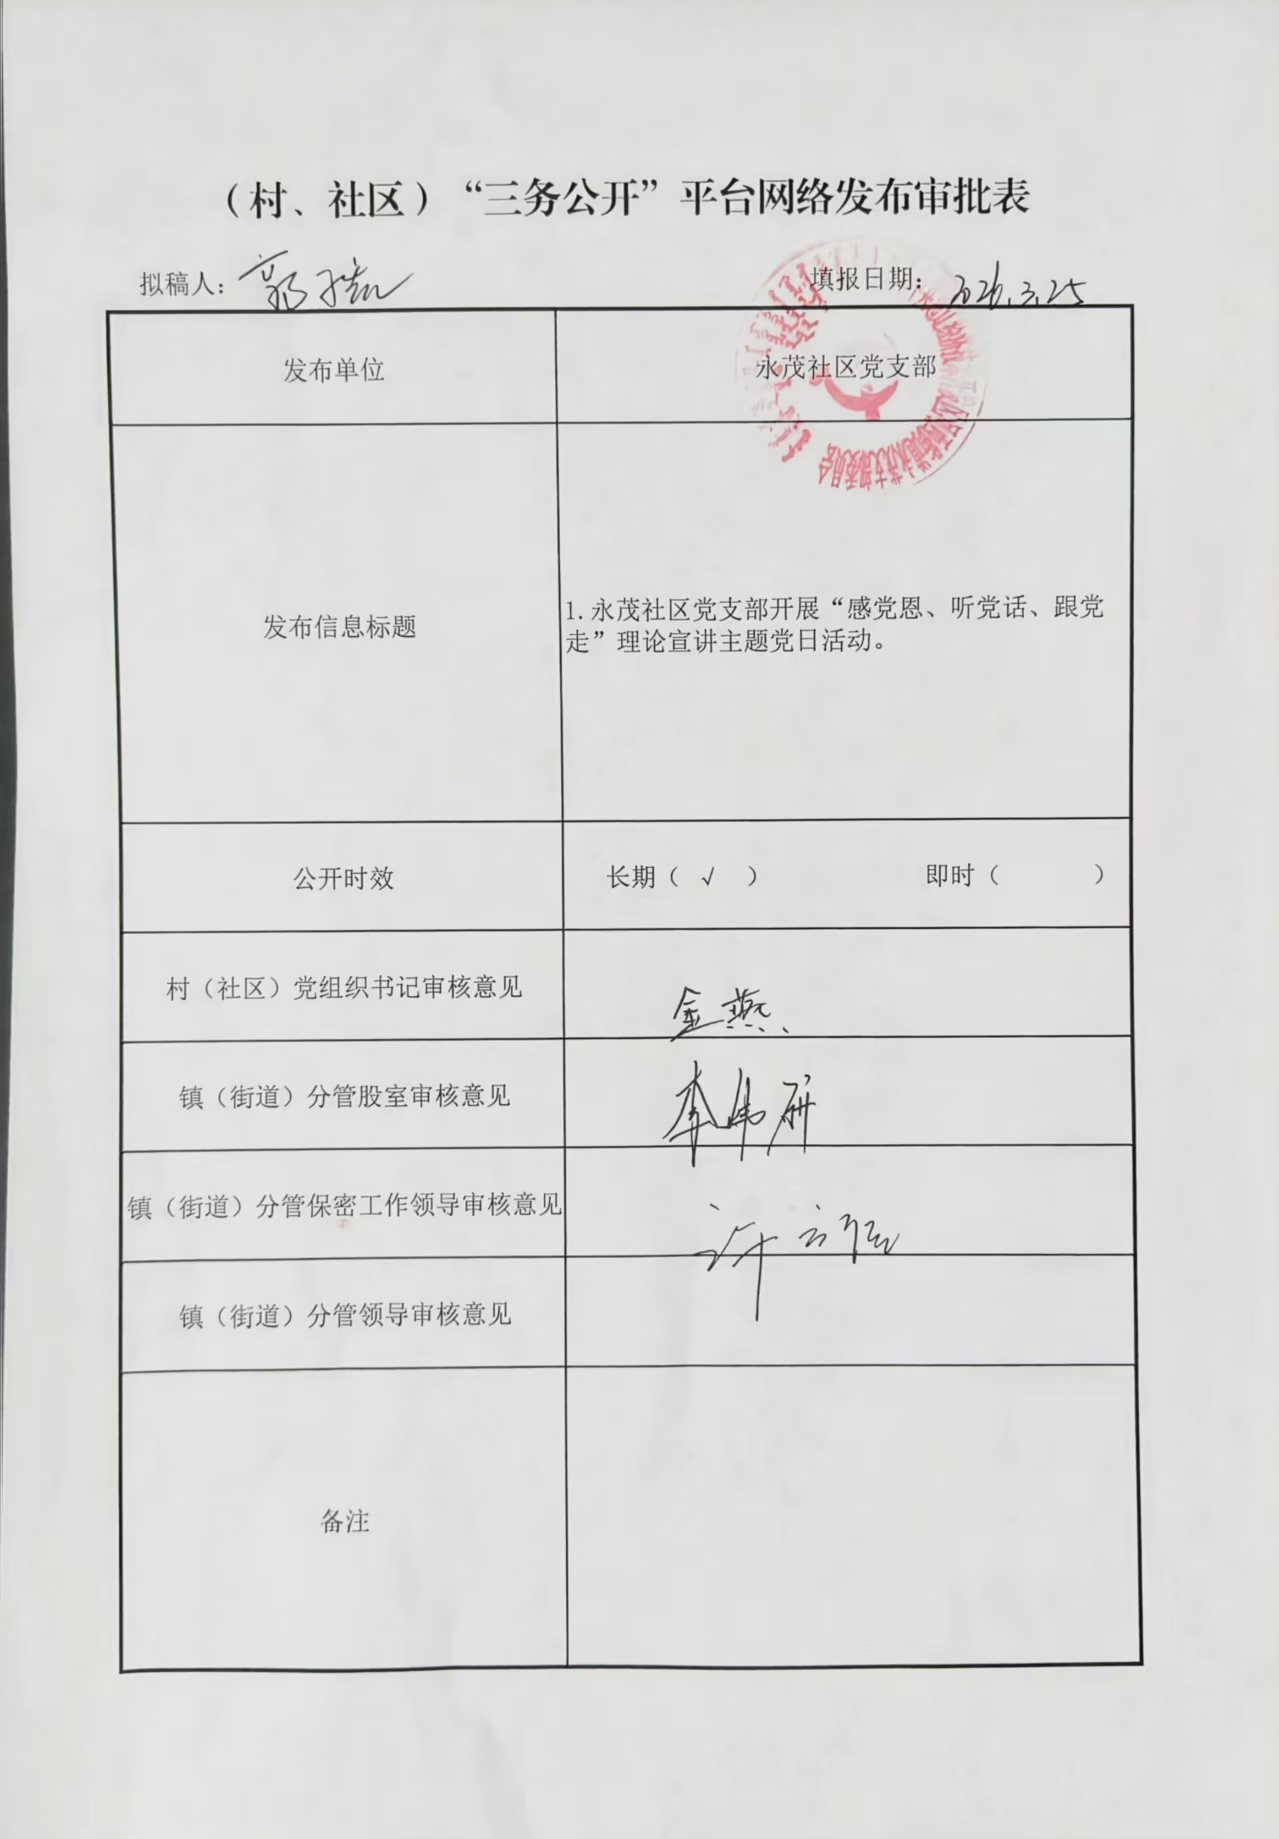 （村、社区）“三务公开”平台网络发布审批表
拟稿人： 填报日期：2026.3.25
发布单位 永茂社区党支部
发布信息标题
1.永茂社区党支部开展“感党恩、听党话、跟党
走”理论宣讲主题党日活动。
公开时效 长期（ √ ） 即时（ ）
村（社区）党组织书记审核意见 金燕
镇（街道）分管股室审核意见 李
镇（街道）分管保密工作领导审核意见 许
镇（街道）分管领导审核意见
备注